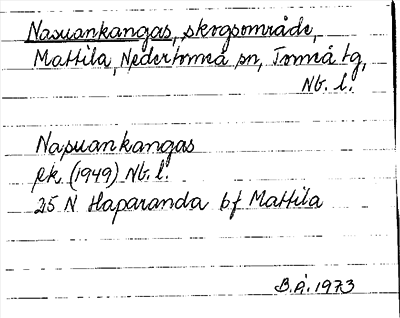 Napuankangas, skogsområde,
Mattila, Nedertorneå sn, Torneå tg,
Nb. l.
Napuankangas
ek. (1949) Nb. l.
25 N Haparanda bf Mattila
B.Å. 1973